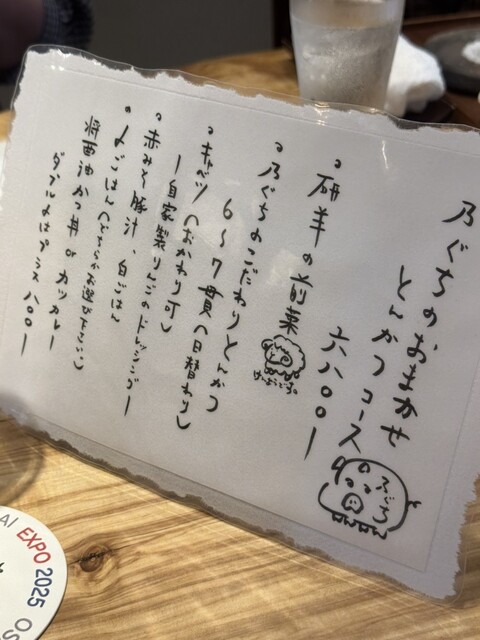 乃ぐちのおまかせ
とんかつコース
六八〇〇ー
乃ぐち
・研羊の前菜
けんようごころ。
・乃ぐちのこだわりとんかつ
6〜7貫(日替わり)
・キャベツ(おかわり可)
ー自家製りんごのドレッシングー
・赤みそ豚汁、白ごはん
・〆ごはん(どちらかお選び下さい)
将西油かつ丼 or カツカレー
ダブル〆はプラス八〇〇ー
AI EXPO 2025 OS